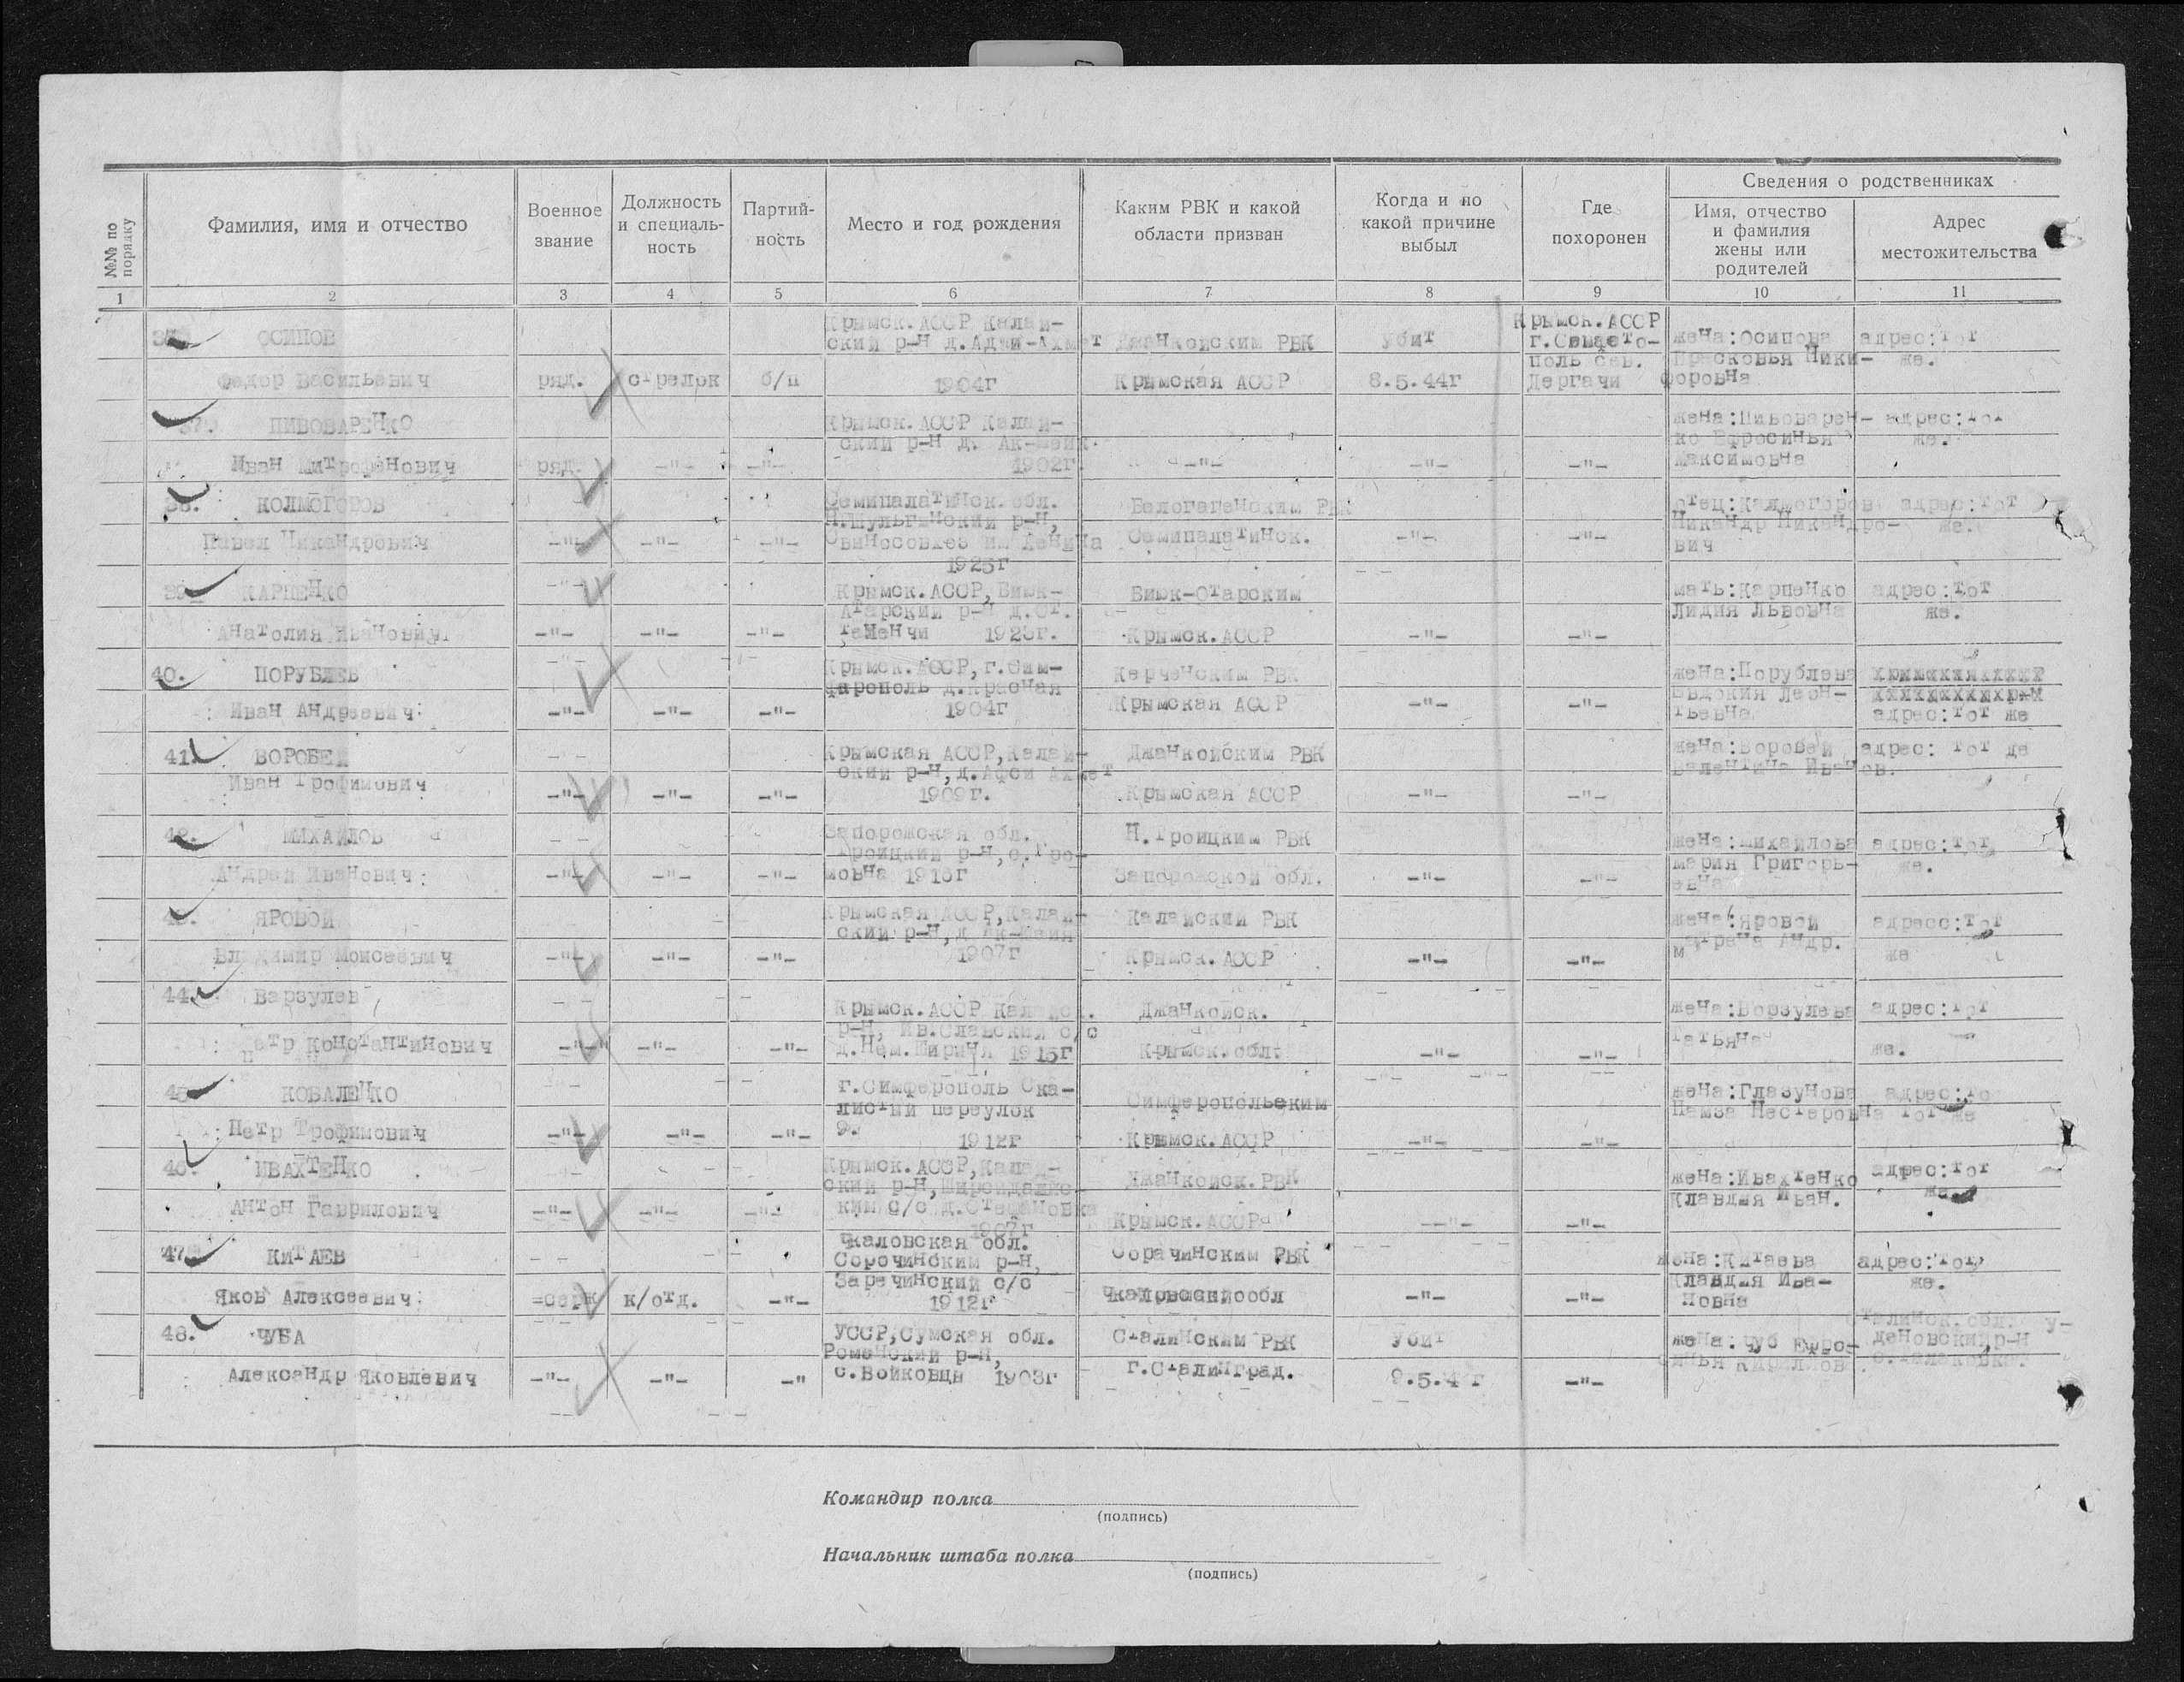 №№ по порядку
Фамилия, имя и отчество
Военное звание
Должность и специаль-ность
Партий-ность
Место и год рождения
Каким РВК и какой области призван
Когда и по какой причине выбыл
Где похоронен
Сведения о родственниках
Имя, отчество и фамилия жены или родителей
Адрес местожительства
1 2 3 4 5 6 7 8 9 10 11
ОСИПОВ
Крымск. АССР Калай-
Крымск. АССР
ский р-н д. Аджи-Ахмет Джанкойским РВК Убит г. Севасто- жена: Осипова адрес: тот
поль сев. Прасковья Ники- же.
Федор Васильевич ряд. стрелок б/п 1904г Крымская АССР 8.5.44г Дергачи форовна
37. ПИВОВАРЕНКО Крымск. АССР Калай- жена: Пивоварен- адрес: тот
ский р-н д. Ак-шейх. ко Ефросинья же.
Иван Митрофанович ряд. -"- -"- 1902г. -"- -"- -"- Максимовна
38. КОЛМОГОРОВ Семипалатинск. обл. Белогаченским РВК отец: Калмогоров адрес: тот
Н. Шульгинский р-н, Никандр Никандро- же.
Павел Никандрович -"- -"- -"- Свиносовхоз им Ленина Семипалатинск. -"- -"- вич
1925г
39. КАРПЕНКО -"- Крымск. АССР, Биюк- Биюк-Отарским мать: Карпенко адрес: тот
Атарский р-н д. От. Лидия Львовна же.
Анатолия Иванович -"- -"- -"- 192 г. Крымск. АССР -"- -"-
40. ПОРУБЛЕВ Крымск. АССР, г. Сим- Керченским РВК жена: Порублева
фарополь д. Красная Евдокия Леон-
Иван Андреевич: -"- -"- -"- 1904г Крымская АССР -"- -"- тьевна адрес: тот же
41. ВОРОБЕЙ Крымская АССР, Калай- Джанкойским РВК жена: Воробей адрес: тот де
ский р-н, д. Афси Ахмет Валентина Иванов.
Иван Трофимович -"- -"- -"- 1909г. Крымская АССР -"- -"-
42. МИХАЙЛОВ Запорожская обл. Н. Троицким РВК жена: Михайлова адрес: тот
Троицкий р-н, с. Гро- Мария Григорь- же.
Андрей Иванович: -"- -"- -"- мовна 191 г Запорожской обл. -"- -"- евна
43. ЯРОВОЙ Крымская АССР, Калай- Калайский РВК жена: Яровой адресс: тот
ский р-н, д Ак-шайя Матрена Андр.
Владимир Моисеевич -"- -"- -"- 1907г Крымск. АССР -"- -"- же
44. Варзулев Крымск. АССР Джанкойск. жена: Борзулева адрес: тот
р-н, Ив. Славский с/с Татьяна
Петр Константинович -"- -"- -"- д. Нем. Ширин 1915г Крымск. обл. -"- -"- же.
45 КОВАЛЕНКО г. Симферополь Ска- Симферопольским жена: Глазунова адрес: то
листый переулок Нестеровна тот же
Петр Трофимович -"- -"- -"- 9. 1912г Крымск. АССР -"- -"-
46. ИВАХТЕНКО Крымск. АССР, Калай- Джанкойск. РВК жена: Ивахтенко адрес: тот
ский р-н, Клавдия Иван. же
Антон Гаврилович -"- -"- -"- ким с/с д. Стефановка Крымск. АССР -"- -"-
1907г
47. КИТАЕВ Чкаловская обл. Сорачинским РВК жена: Китаева адрес: тот
Сорочинским р-н, Клавдия Ива- же.
Заречинский с/с
Яков Алексеевич: серж к/отд. -"- 1912г -"- -"- новна
48. ЧУБА УССР, Сумская обл. Сталинским РВК Убит жена: Чуб Ефро- Сталинск. обл. у-
Роменский р-н, синья Кириллов
Александр Яковлевич -"- -"- -" с. Войковцы 1903г г. Сталинград. 9.5.4 г -"-
Командир полка
(подпись)
Начальник штаба полка
(подпись)